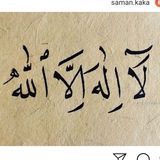 saman.kaka
لَا إِلٰهَ إِلَّا ٱللّٰهُ